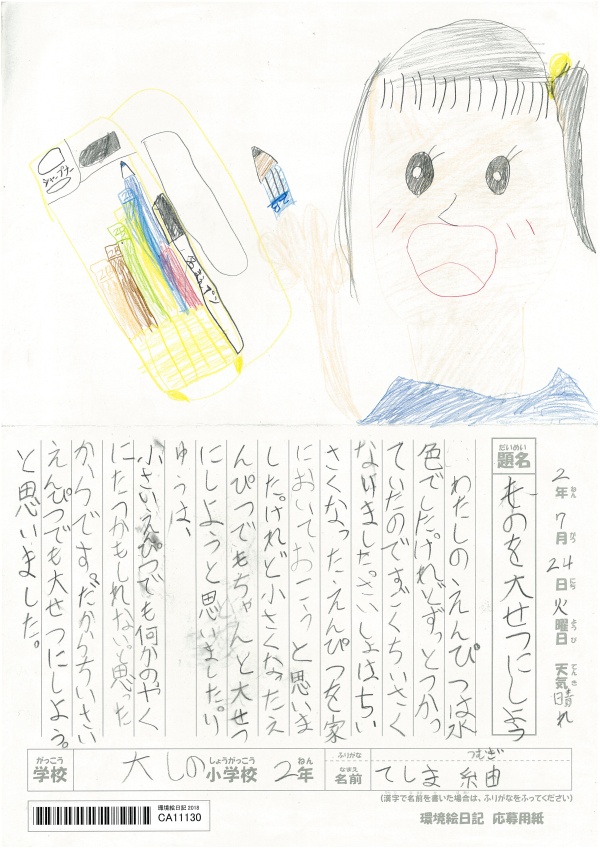 シャープナー
2B
2年7月24日火曜日 天気晴れ
ねん がつ にち ようび てんき
だいめい
題名 ものを大せつにしよう
わたしのえんぴつは水
色でした。けれどずっとつかっ
ていたのですごくちいさく
なりました。さいしょはちい
さくなったえんぴつを家
においておこうと思いま
した。けれど小さくなったえ
んぴつでもちゃんと大せつ
にしようと思いました。り
ゆうは、
小さいえぴつでも何かのやく
にたつかもしれない。と思った
からです。だからちいさい
えんぴつでも大せつにしよう。
と思いました。
がっこう しょうがっこう ねん
学校 大しの小学校 2年
ふりがな つむぎ
なまえ
名前 てしま 紬
(漢字で名前を書いた場合は、ふりがなをふってください)
環境絵日記 2018
CA11130
環境絵日記 応募用紙